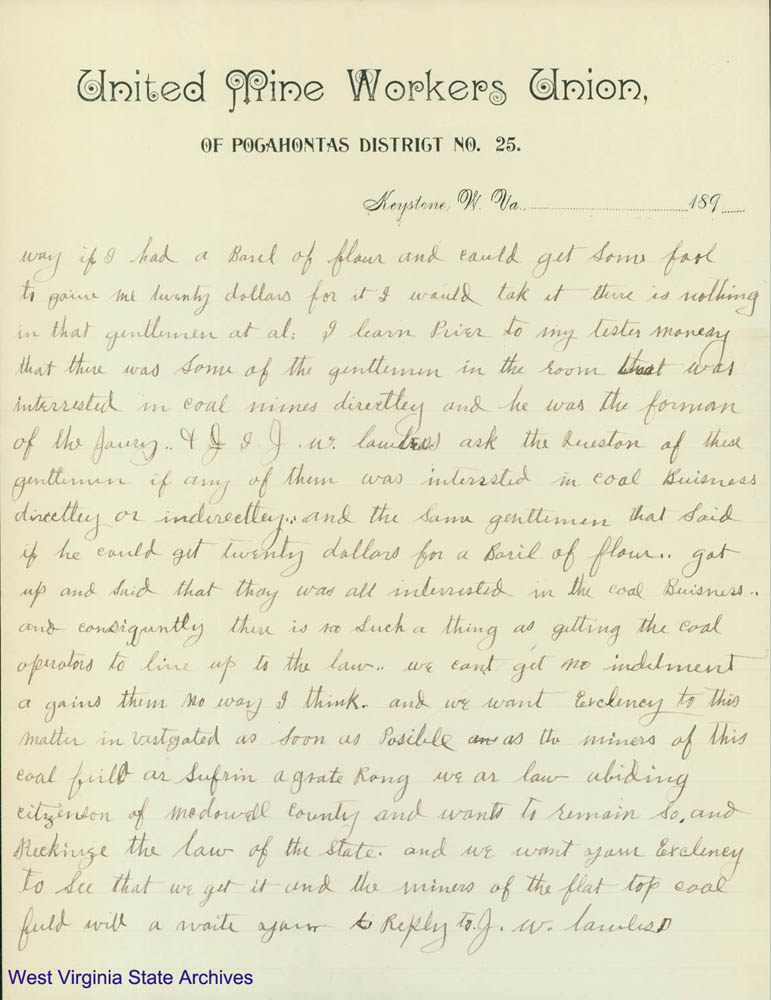 United Mine Workers Union,
OF POGAHONTAS DISTRICT NO. 25.
Keystone, W. Va. 189
way if I had a Baril of flour and could get Some fool
to gaive me twenty dollars for it I would tak it there is nothing
in that gentlemen at al: I learn Prier to my tester moneay
that there was Some of the gentlemen in the room that was
interrested in coal mines directtley and he was the forman
of the Joury.. & I J. w. lawless ask the Queston of these
gentlemen if any of them was interrsted in coal Buisness
directtley or indirecttey.. and the Same gentlemen that Said
if he could git twenty dollars for a Baril of flour.. got
up and Said that thay was all interrested in the coal Buisness..
and consiquntly there is no Such a thing as getting the coal
operators to live up to the law.. we cant git no inditment
a gains them no way I think. and we want Exclency to this
matter in vestgated as Soon as Posible as the miners of this
coal feild ar Sufrin a grate Rong we ar law abiding
citizenson of mcdowell County and wants to remain So, and
the law of the State. and we want your Exclency
to See that we get it and the miners of the flat top coal
feild will a waite your Reply to. J. w. lawless
West Virginia State Archives